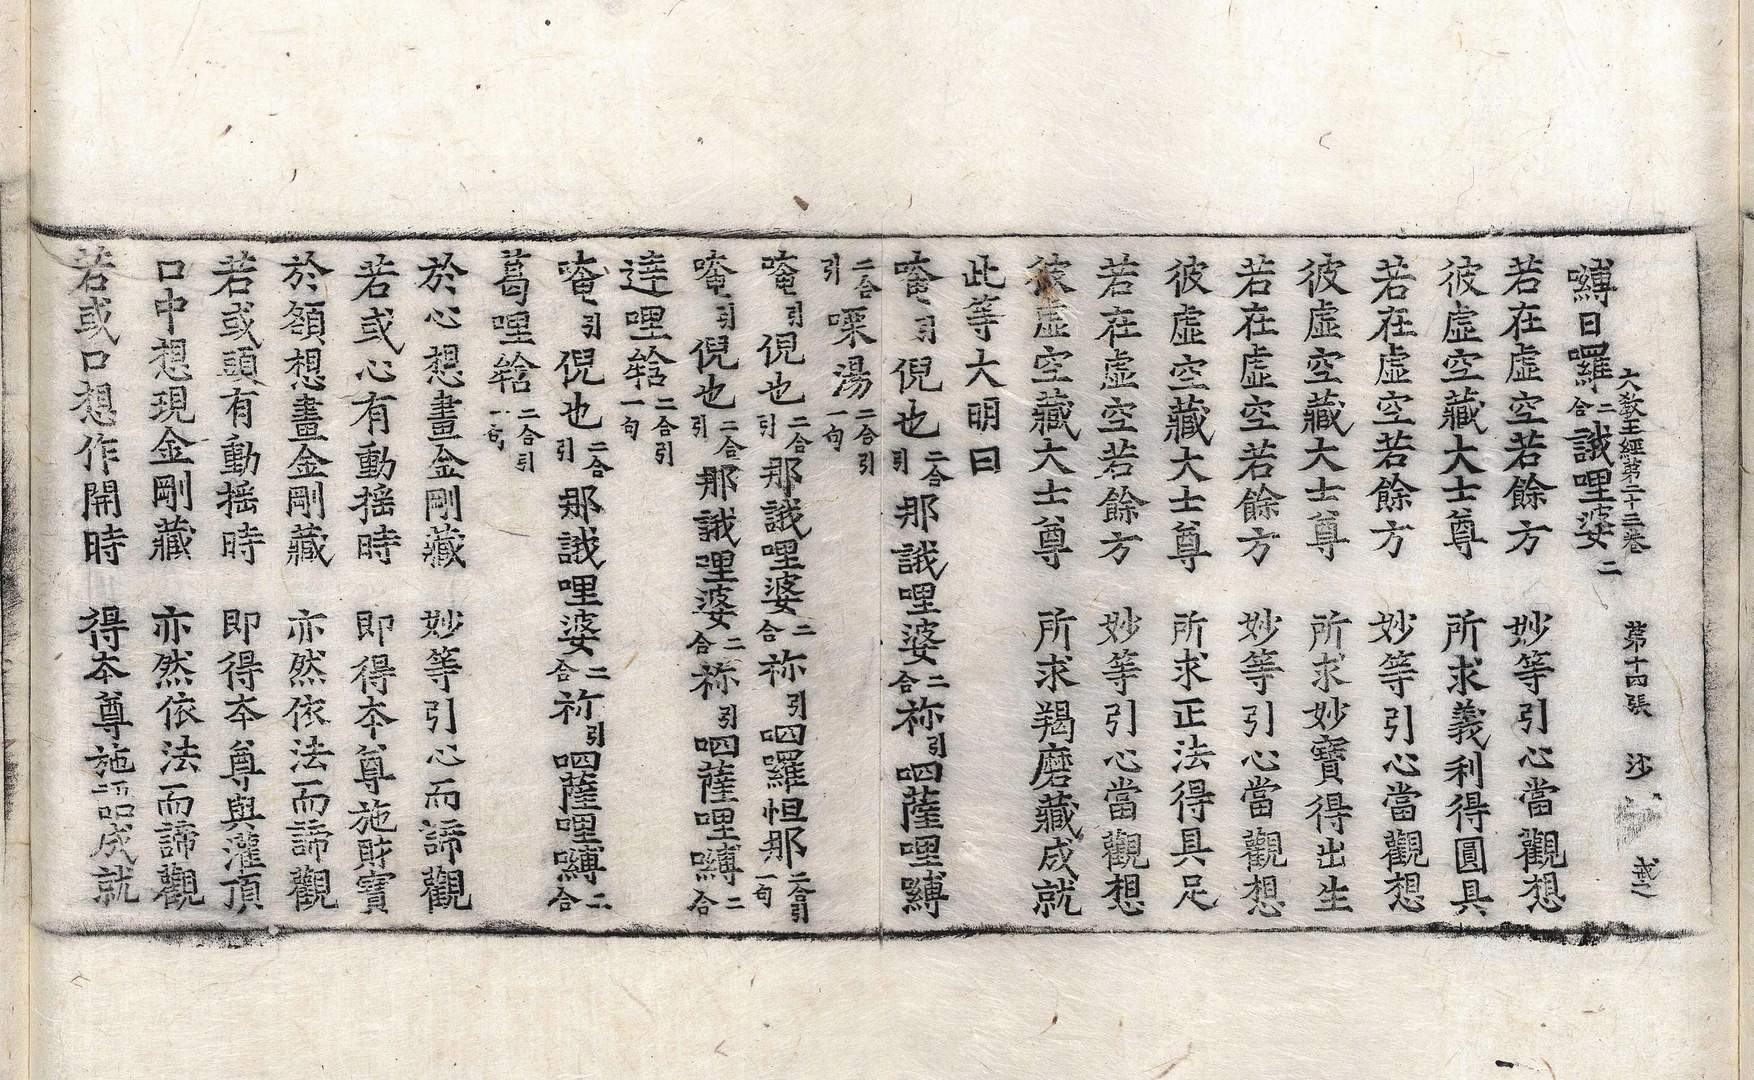 大教王經第二十三卷　第十四張　沙　㦲
嚩日囉二合誐哩婆二
若在虛空若餘方　妙等引心當觀想
彼虛空藏大士尊　所求義利得圓具
若在虛空若餘方　妙等引心當觀想
彼虛空藏大士尊　所求妙寶得出生
若在虛空若餘方　妙等引心當觀想
彼虛空藏大士尊　所求正法得具足
若在虛空若餘方　妙等引心當觀想
彼虛空藏大士尊　所求羯磨藏成就
此等大明曰
唵引倪也二合引那誐哩婆二合祢引呬薩哩嚩
二合引㗚湯二合引一句
唵引倪也二合引那誐哩婆二合祢引呬羅怛那二合引一句
唵引倪也二合引那誐哩婆二合祢引呬薩哩嚩二合
達哩𤚥二合引一句
唵引倪也二合引那誐哩婆二合祢引呬薩哩嚩二合
葛哩𤚥二合引一句
於心想畫金剛藏　妙等引心而諦觀
若或心有動搖時　即得本尊施財寶
於額想畫金剛藏　亦然依法而諦觀
若或頭有動搖時　即得本尊與灌頂
口中想現金剛藏　亦然依法而諦觀
若或口想作開時　得本尊施語成就